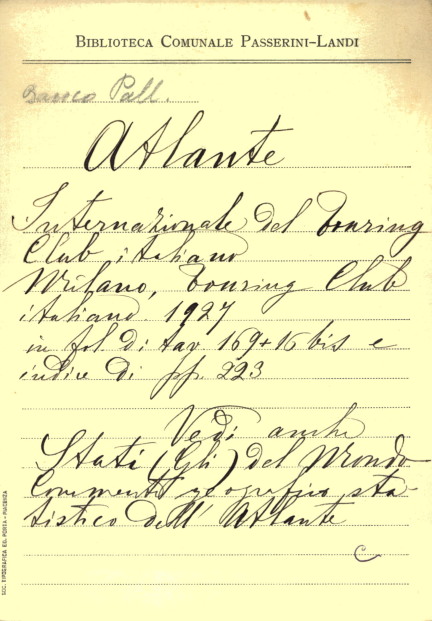 BIBLIOTECA COMUNALE PASSERINI-LANDI
Banco Pall.
Atlante
Internazionale del Touring
Club italiano
Milano, Touring Club
italiano. 1927
in fol. di tav 169+16 bis e
indice di pp. 223
Vedi anche
Stati (Gli) del Mondo
Commento geografico sta-
tistico dell' Atlante
C
SOC. TIPOGRAFICA ED. PORTA - PIACENZA